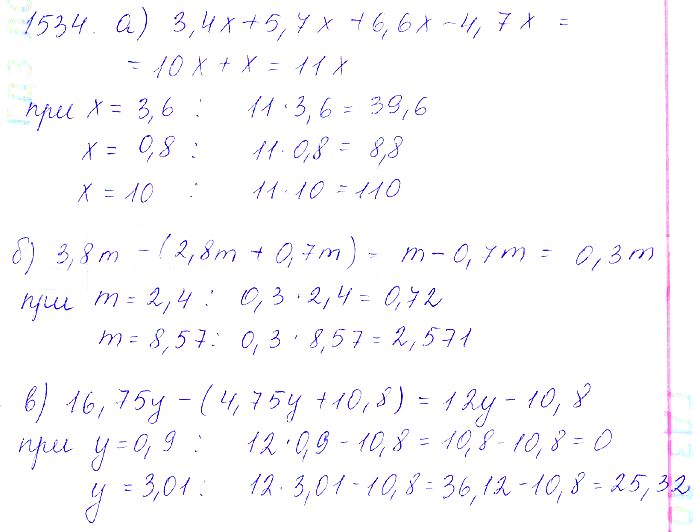 1534. а) 3,4x+5,7x+6,6x-4,7x =
= 10x + x = 11x
при x = 3,6 : 11·3,6 = 39,6
x = 0,8 : 11·0,8 = 8,8
x = 10 : 11·10 = 110
б) 3,8m - (2,8m + 0,7m) = m - 0,7m = 0,3m
при m = 2,4 : 0,3·2,4 = 0,72
m = 8,57 : 0,3·8,57 = 2,571
в) 16,75y - (4,75y + 10,8) = 12y - 10,8
при y = 0,9 : 12·0,9 - 10,8 = 10,8 - 10,8 = 0
y = 3,01 : 12·3,01 - 10,8 = 36,12 - 10,8 = 25,32